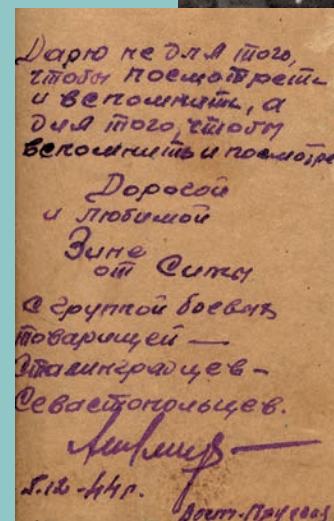 Дарю не для того,
чтобы посмотреть
и вспомнить, а
для того, чтобы
вспомнить и посмотре
Дорогой
и любимой
Зине
от Симы
С группой боевых
товарищей —
Сталинградцев –
Севастопольцев.
5.12-44г.
Вост.